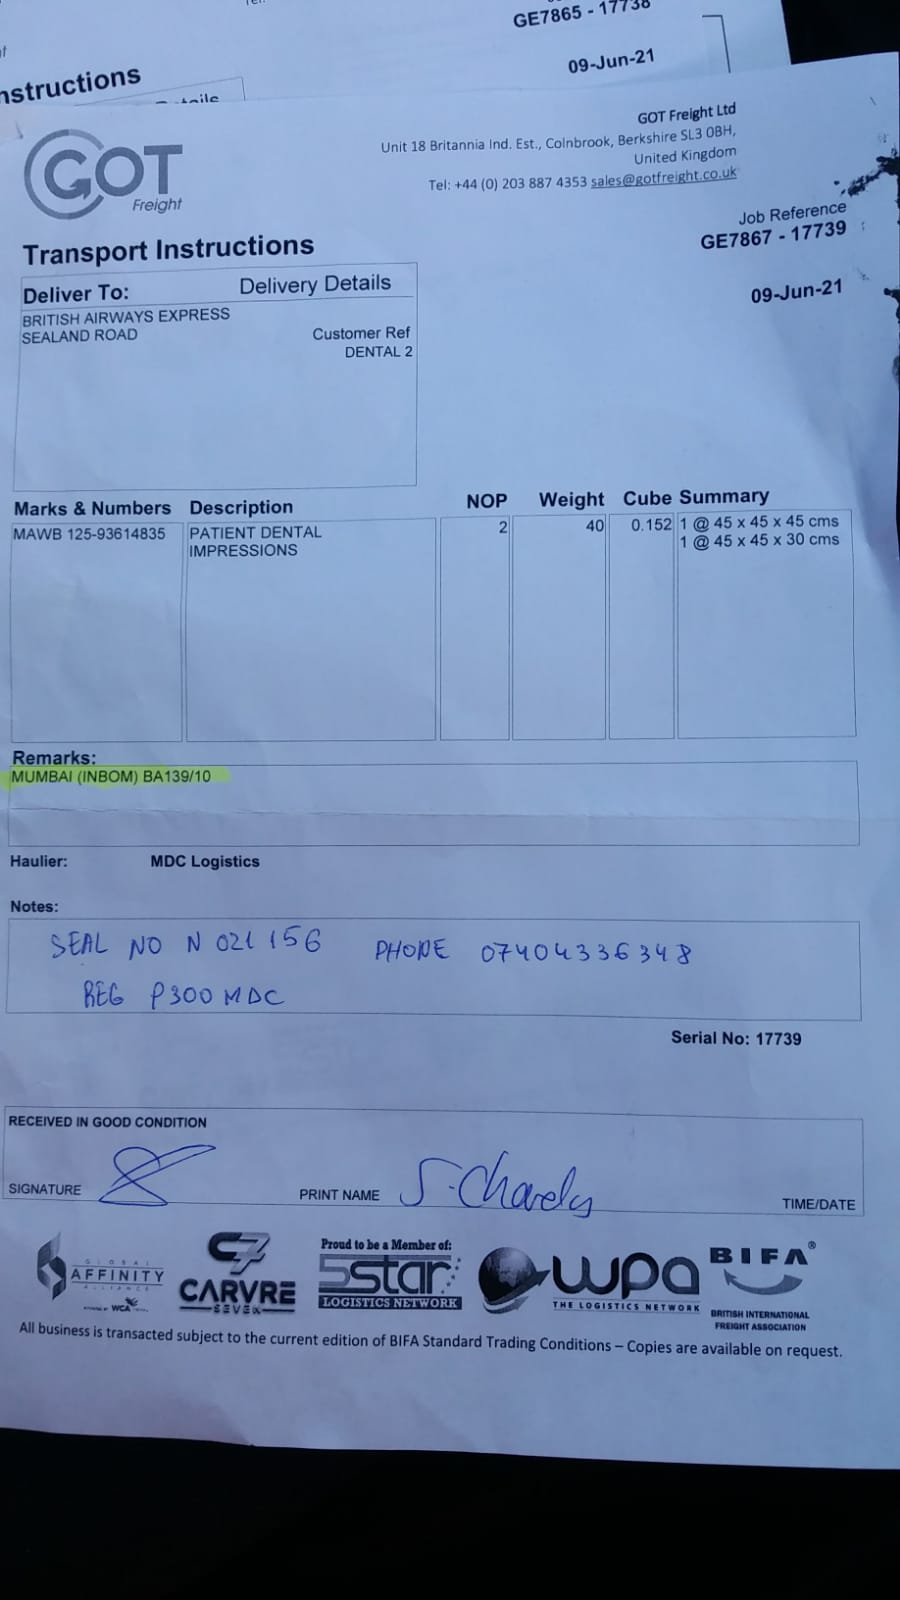 GE7865 - 17738
09-Jun-21
nstructions
GOT
Freight
GOT Freight Ltd
Unit 18 Britannia Ind. Est., Colnbrook, Berkshire SL3 0BH,
United Kingdom
Tel: +44 (0) 203 887 4353 sales@gotfreight.co.uk
Job Reference
GE7867 - 17739
09-Jun-21
Transport Instructions
Deliver To: Delivery Details
BRITISH AIRWAYS EXPRESS
SEALAND ROAD
Customer Ref
DENTAL 2
Marks & Numbers Description NOP Weight Cube Summary
MAWB 125-93614835 PATIENT DENTAL 2 40 0.152 1 @ 45 x 45 x 45 cms
IMPRESSIONS 1 @ 45 x 45 x 30 cms
Remarks:
MUMBAI (INBOM) BA139/10
Haulier: MDC Logistics
Notes:
SEAL NO N 021156 PHONE 07404336348
REG P300 MDC
Serial No: 17739
RECEIVED IN GOOD CONDITION
SIGNATURE PRINT NAME TIME/DATE
GLOBAL
AFFINITY
ALLIANCE
WCA
C7
CARVRE
SEVEN
Proud to be a Member of:
5star
LOGISTICS NETWORK
wpa
THE LOGISTICS NETWORK
BIFA®
BRITISH INTERNATIONAL
FREIGHT ASSOCIATION
All business is transacted subject to the current edition of BIFA Standard Trading Conditions – Copies are available on request.